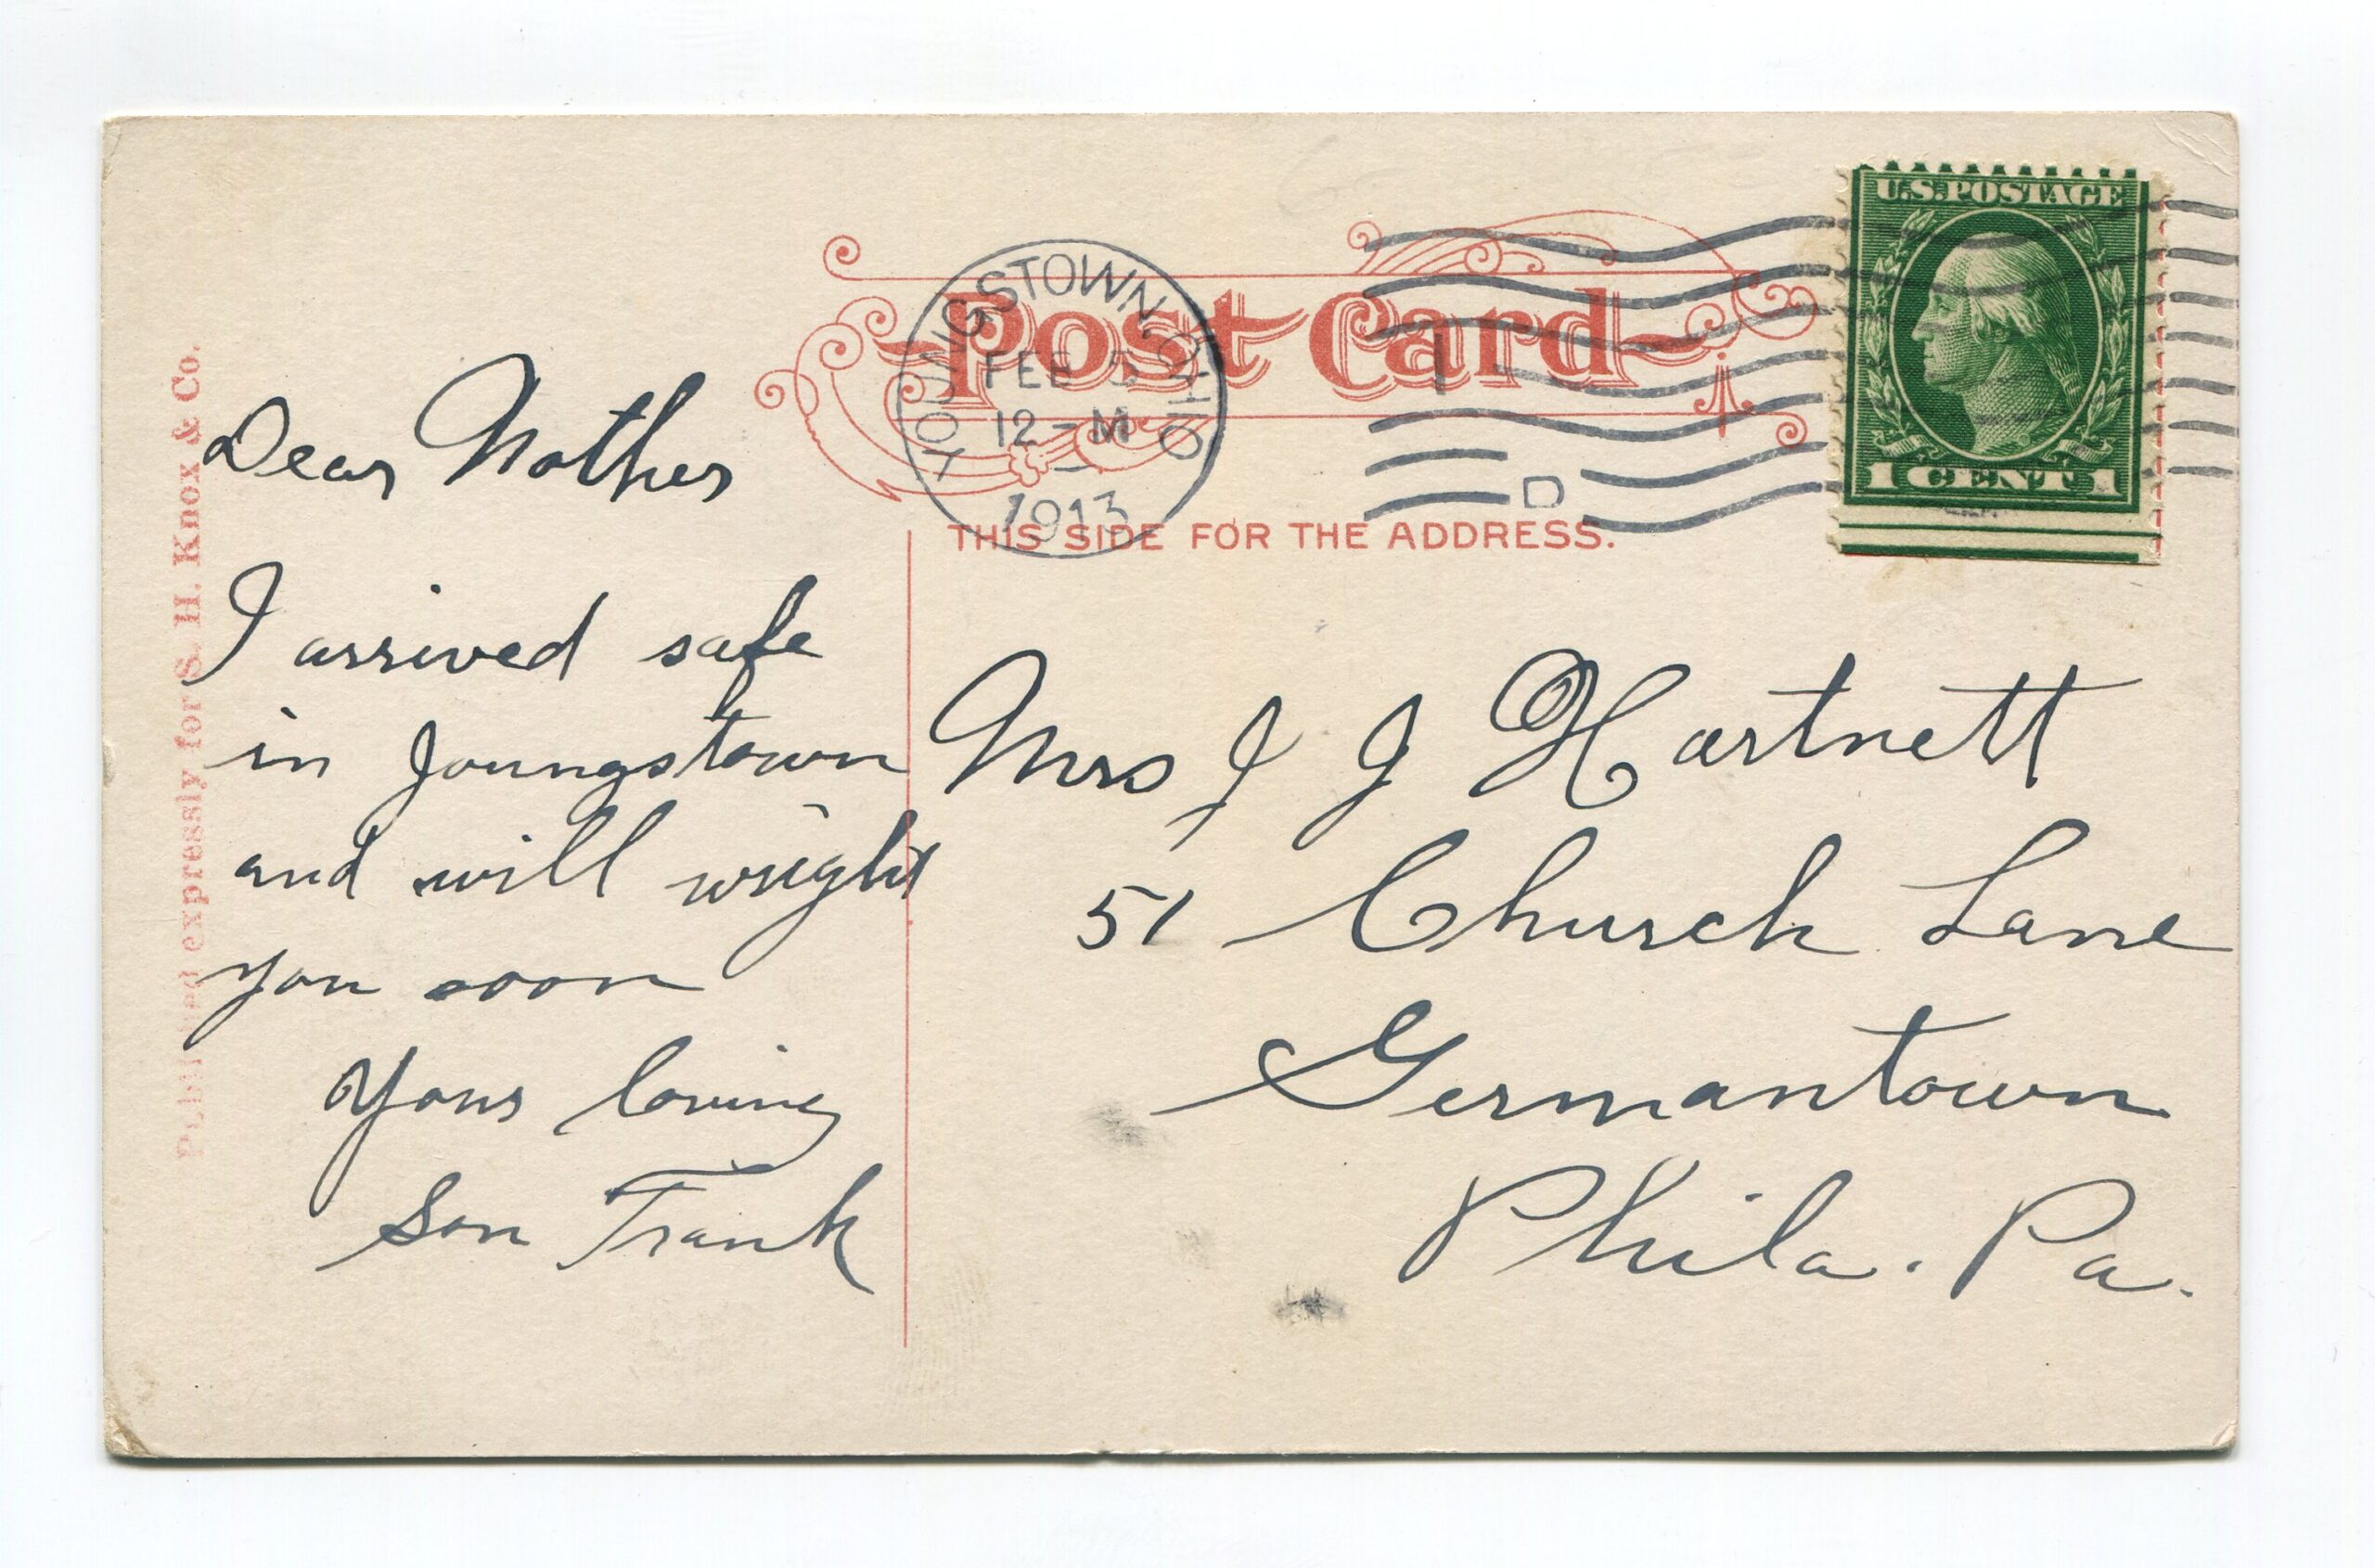 Published expressly for S. H. Knox & Co.
Post Card
THIS SIDE FOR THE ADDRESS.
YOUNGSTOWN, OHIO
FEB 5
12 - M
1913
D
U.S. POSTAGE
1 CENT 1
Dear Mother
I arrived safe
in Youngstown
and will wright
you soon
Yours loving
Son Frank
Mrs J J Hartnett
51 Church Lane
Germantown
Phila. Pa.